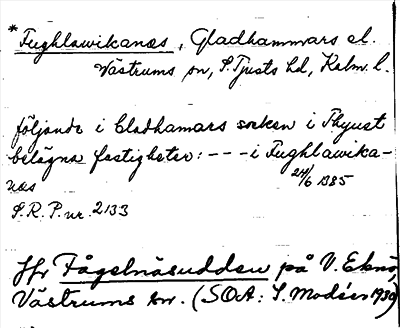 * Fughlawikanæs, Gladhammars el.
Västrums sn, S. Tjusts hd, Kalm. l.
följande i Gladhamars socken i Thyust
belägna fastigheter: --- i Fughlawika-
næs 24/6 1385
S.R.P. nr 2133
Jfr Fågelnäsudden på V. Eknö,
Västrums sn. (SOA: I. Modéer 1930)